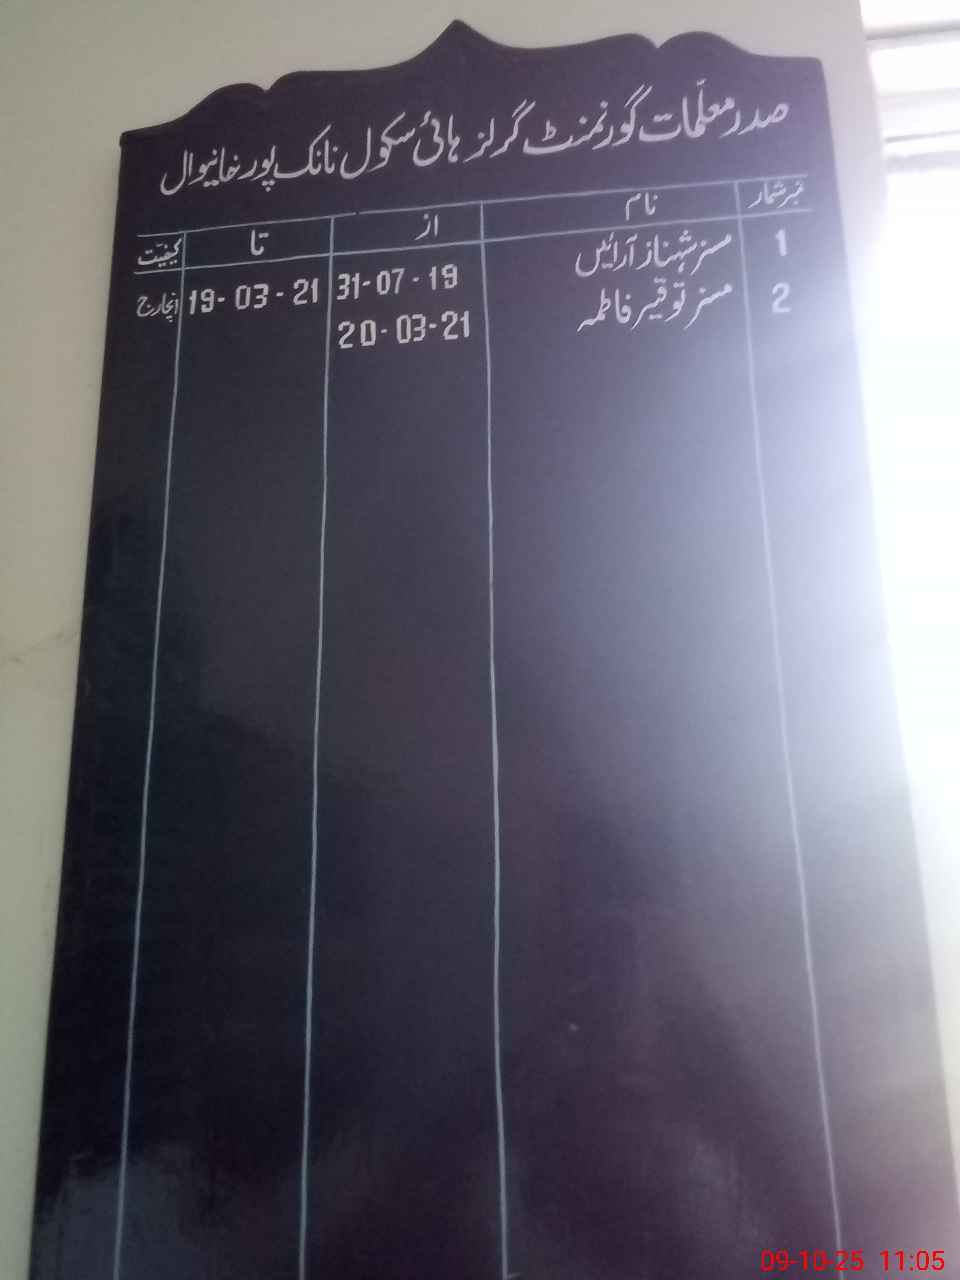 صدر معلّمات گورنمنٹ گرلز ہائی سکول نانک پور خانیوال
نمبر شمار نام از تا کیفیت
1 مسز شہناز آرائیں 31-07-19 19-03-21 انچارج
2 مسز توقیر فاطمہ 20-03-21
09-10-25 11:05